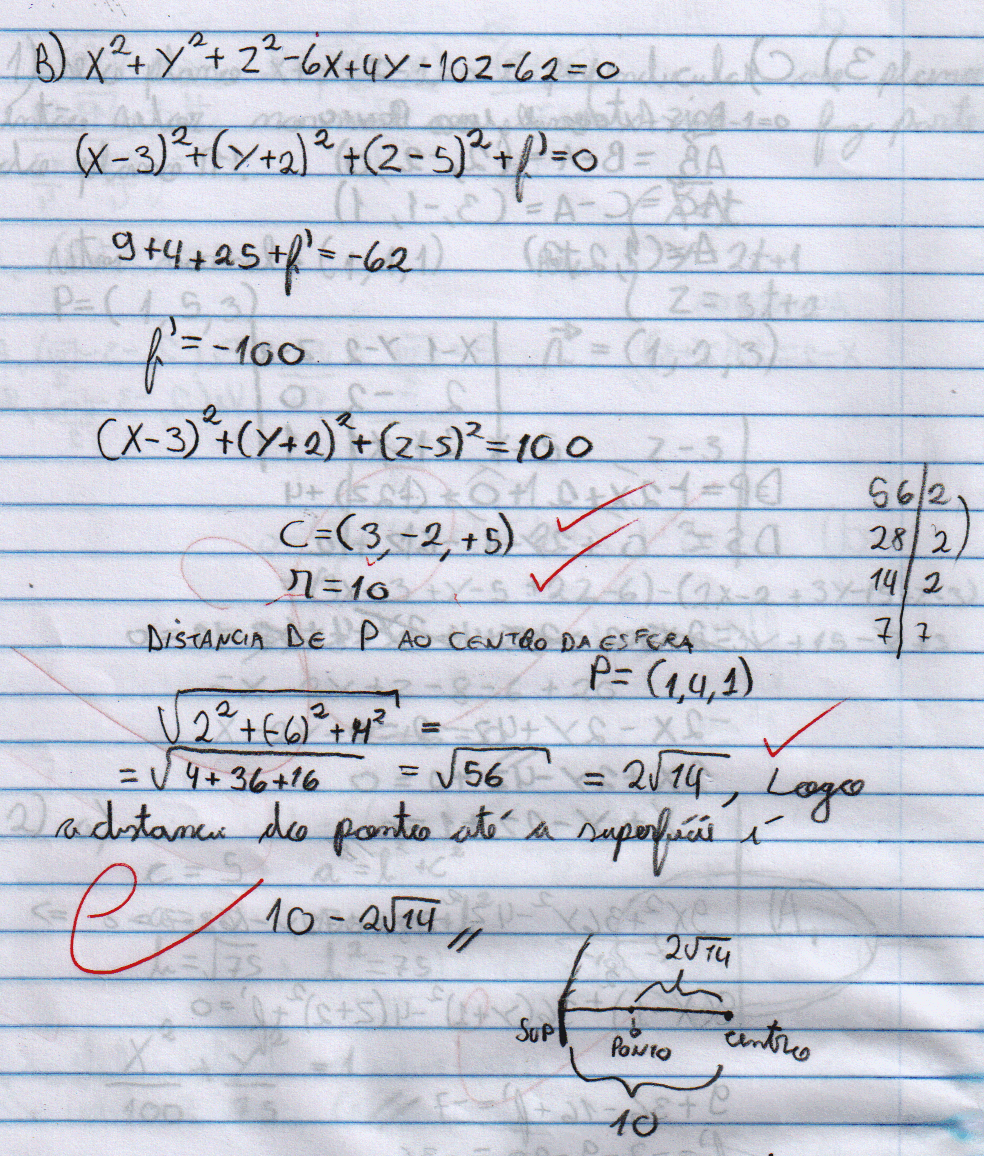 B) X²+Y²+Z²-6X+4Y-10Z-62=0
(X-3)²+(Y+2)²+(Z-5)²+f'=0
9+4+25+f'=-62
f'=-100
(X-3)²+(Y+2)²+(Z-5)²=100
C=(3,-2,+5)
r=10
56|2
28|2)
14|2
7|7
DISTANCIA DE P AO CENTRO DA ESFERA
P=(1,4,1)
√(2²+(-6)²+4²) =
=√(4+36+16) =√56 = 2√14, Logo
a distancia do ponto até a superfície é
10-2√14 //
2√14
SUP PONTO centro
10